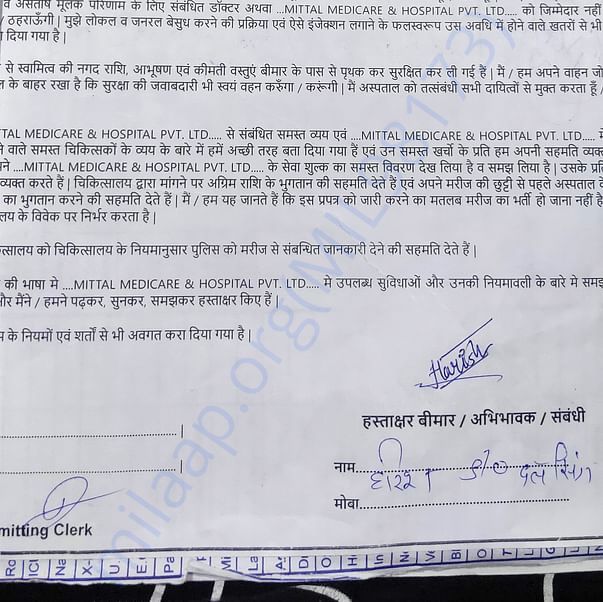 व असंतोष मूलक परिणाम के लिए संबंधित डॉक्टर अथवा ...MITTAL MEDICARE & HOSPITAL PVT. LTD..... को जिम्मेदार नहीं
/ ठहराऊँगी | मुझे लोकल व जनरल बेसुध करने की प्रक्रिया एवं ऐसे इंजेक्शन लगाने के फलस्वरूप उस अवधि में होने वाले खतरों से भी
दिया गया है |
से स्वामित्व की नगद राशि, आभूषण एवं कीमती वस्तुएं बीमार के पास से पृथक कर सुरक्षित कर ली गई हैं | मैं / हम अपने वाहन जो
ल के बाहर रखा है कि सुरक्षा की जवाबदारी भी स्वयं वहन करुँगा / करूगी | मैं अस्पताल को तत्संबंधी सभी दायित्वों से मुक्त करता हूँ /
TAL MEDICARE & HOSPITAL PVT. LTD..... से संबंधित समस्त व्यय एवं ....MITTAL MEDICARE & HOSPITAL PVT. LTD..... में
ने वाले समस्त चिकित्सकों के व्यय के बारे में हमें अच्छी तरह बता दिया गया हैं एवं उन समस्त खर्चो के प्रति हम अपनी सहमति व्यक्त
ने ....MITTAL MEDICARE & HOSPITAL PVT. LTD..... के सेवा शुल्क का समस्त विवरण देख लिया है व समझ लिया है | उसके प्रति
व्यक्त करते हैं | चिकित्सालय द्वारा मांगने पर अग्रिम राशि के भुगतान की सहमति देते हैं एवं अपने मरीज की छुट्टी से पहले अस्पताल के
का भुगतान करने की सहमति देते हैं | मैं / हम यह जानते हैं कि इस प्रपत्र को जारी करने का मतलब मरीज का भर्ती हो जाना नहीं है
लय के विवेक पर निर्भर करता है |
त्सालय को चिकित्सालय के नियमानुसार पुलिस को मरीज से संबन्धित जानकारी देने की सहमति देते हैं |
की भाषा मे ....MITTAL MEDICARE & HOSPITAL PVT. LTD..... मे उपलब्ध सुविधाओं और उनकी नियमावली के बारे मे समझ
और मैंने / हमने पढ़कर, सुनकर, समझकर हस्ताक्षर किए हैं |
म के नियमों एवं शर्तों से भी अवगत करा दिया गया है |
Harish
हस्ताक्षर बीमार / अभिभावक / संबंधी
नाम
मोबा
mitting Clerk
milaap.org(MIL